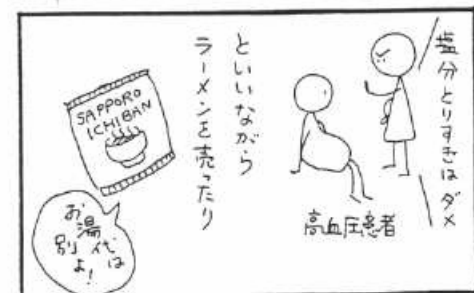 塩分とりすぎはダメ
高血圧患者
といいながら
ラーメンを売ったり
SAPPORO
ICHIBAN
お湯代は
別よ!